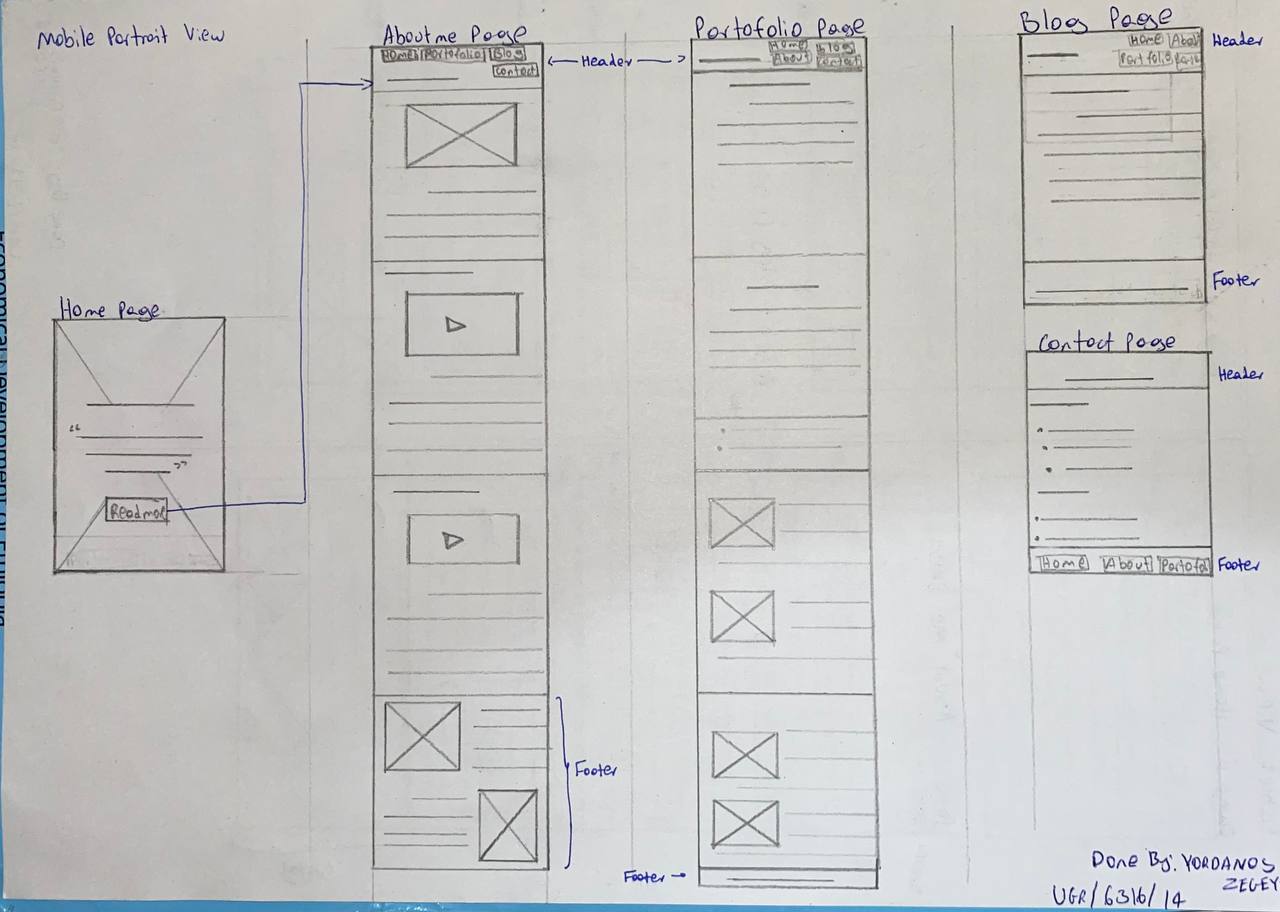 Mobile Portrait View
Home Page
“
”
Readmor
About me Page
Home Portofolio Blog
Contact
Header
Footer
Portofolio Page
Home Blog
About Contact
Footer
Blog Page
Home About
Portfolio
Header
Footer
Contact Page
Header
Home About Portofol
Footer
Done By: YORDANOS
ZEGEY
UGR/6316/14